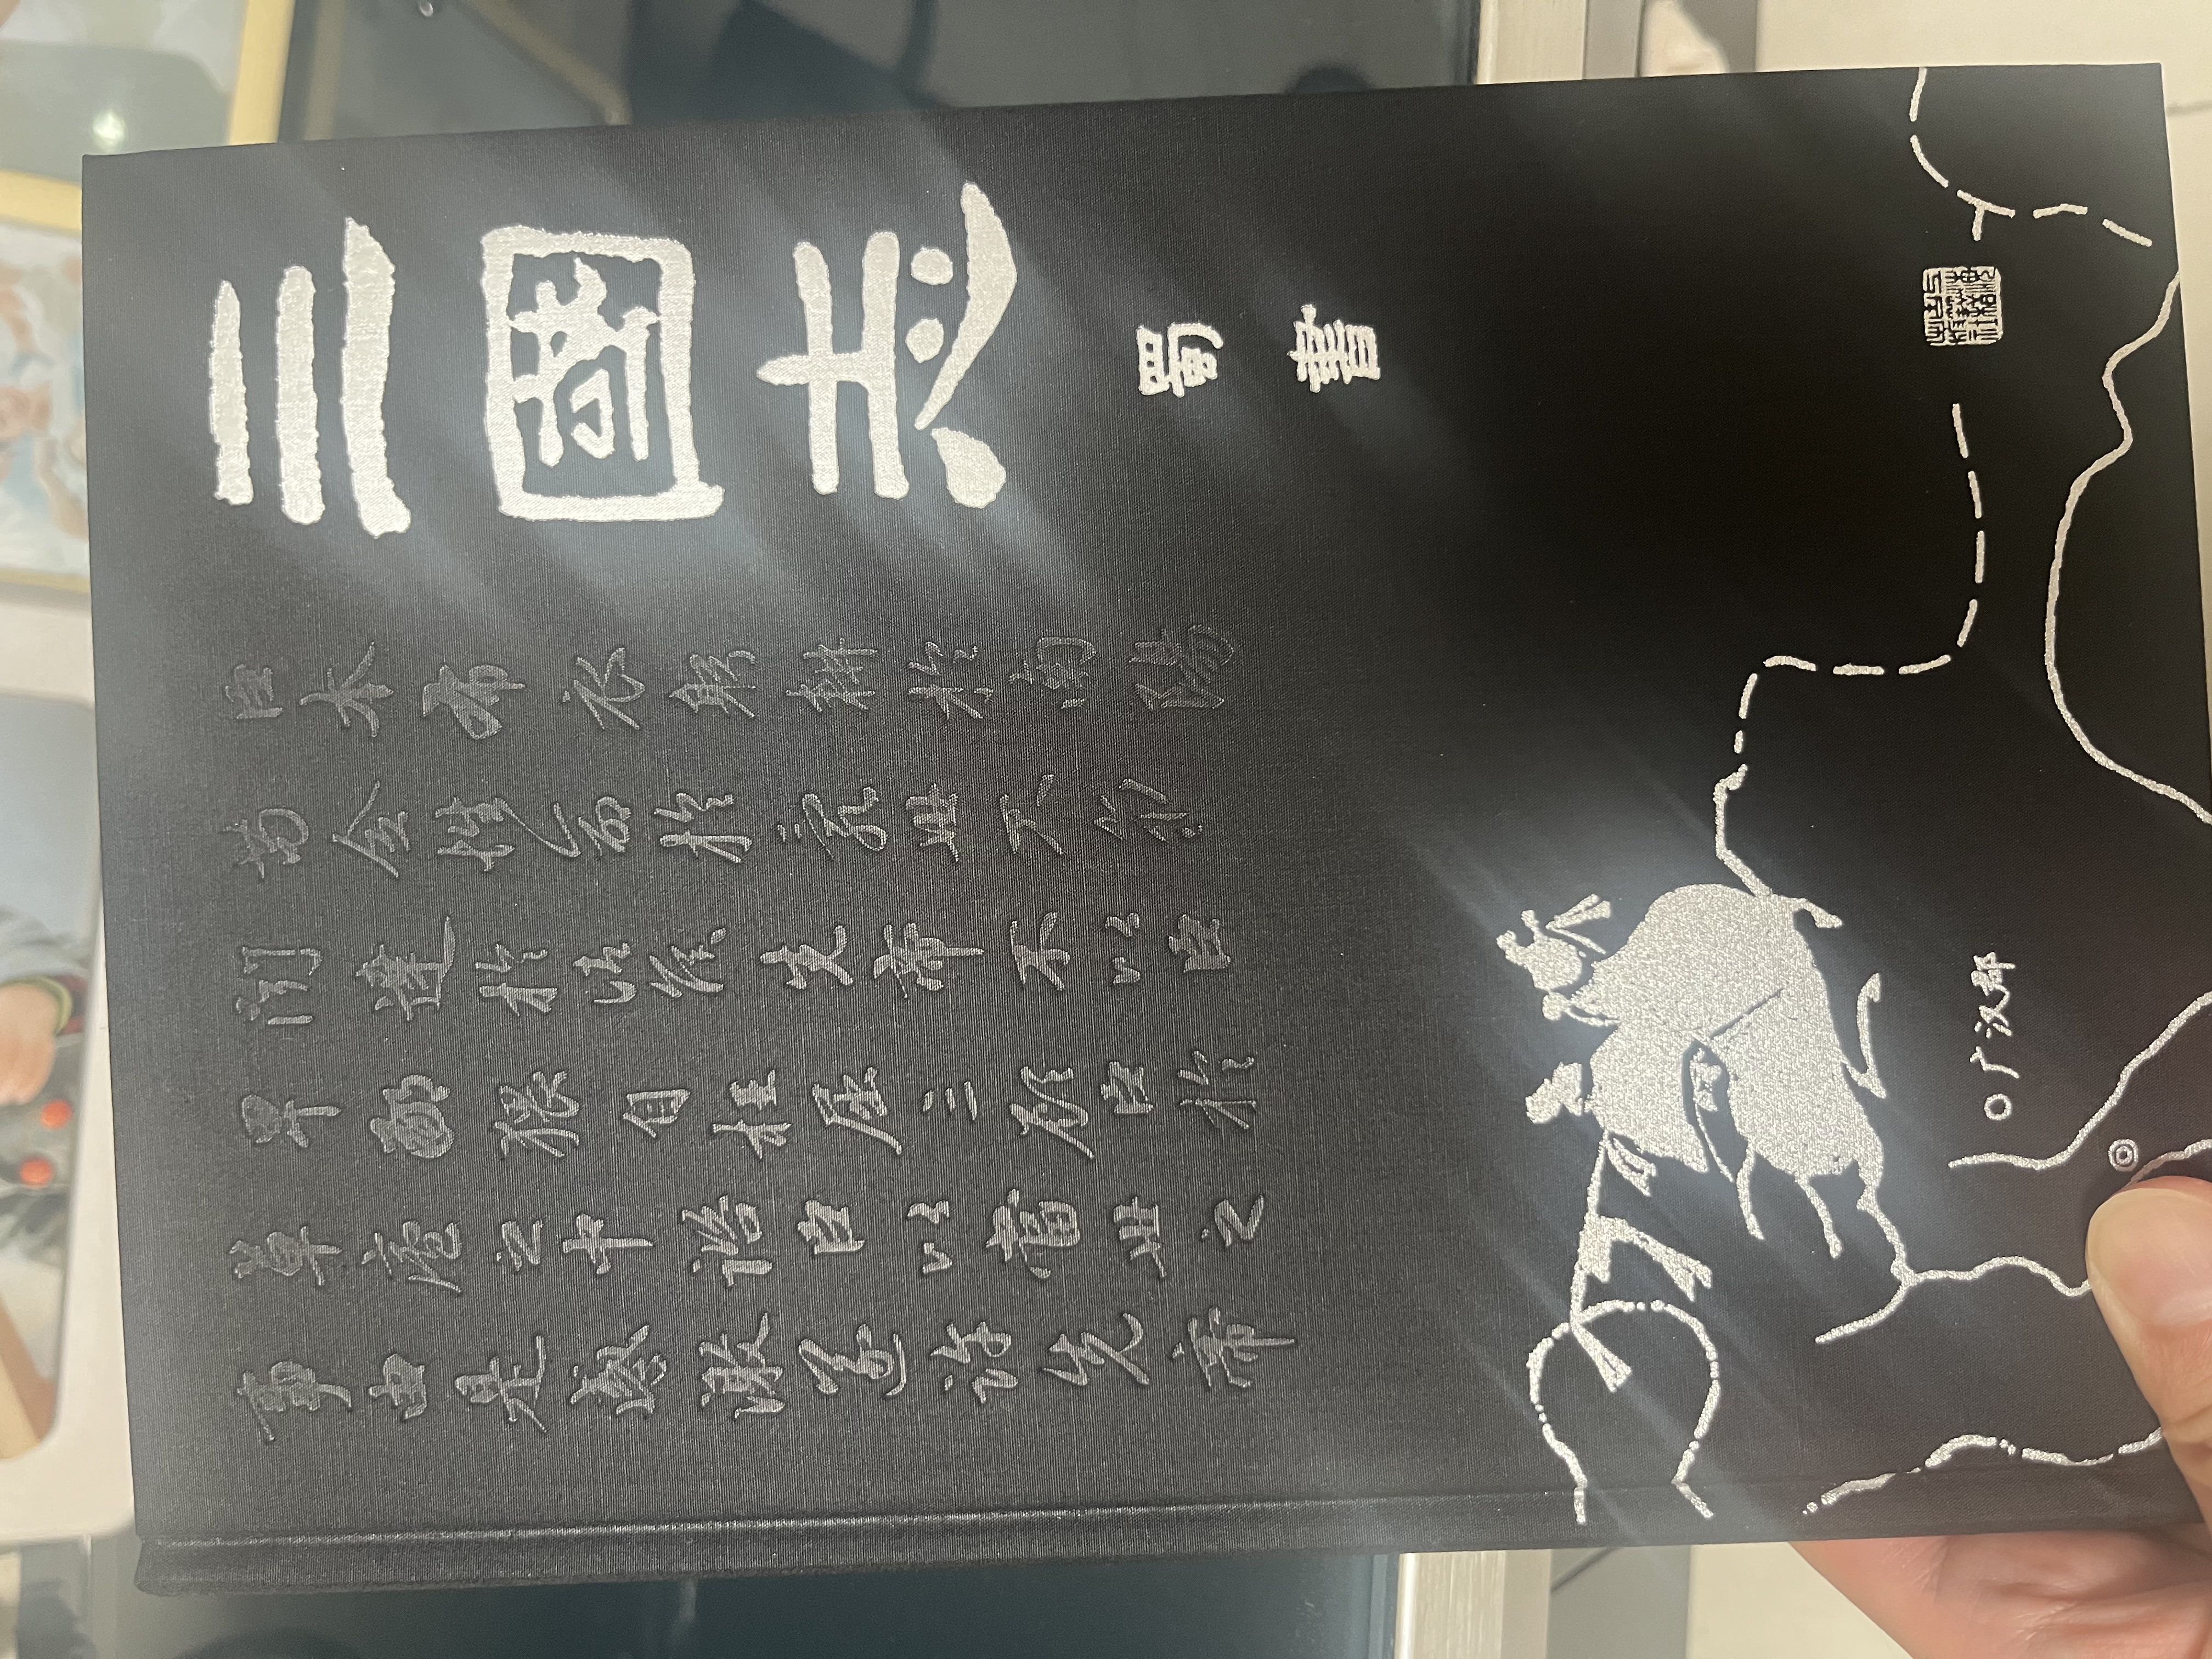 三國志
蜀書
臣本布衣躬耕於南陽
苟全性命於亂世不求
聞達於諸侯先帝不以臣
卑鄙猥自枉屈三顧臣於
草廬之中諮臣以當世之
事由是感激遂許先帝
广汉郡